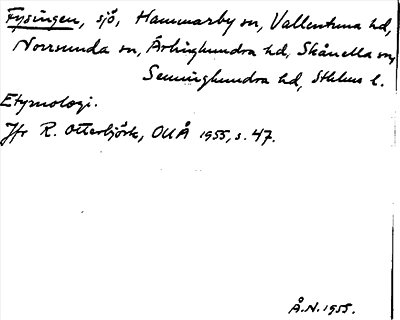 Fysingen, sjö, Hammarby sn, Vallentuna hd,
Norrsunda sn, Ärlinghundra hd, Skånella sn,
Seminghundra hd, Sthlms l.
Etymologi.
Jfr R. Otterbjörk, OUÅ 1955, s. 47.
Å.N. 1955.